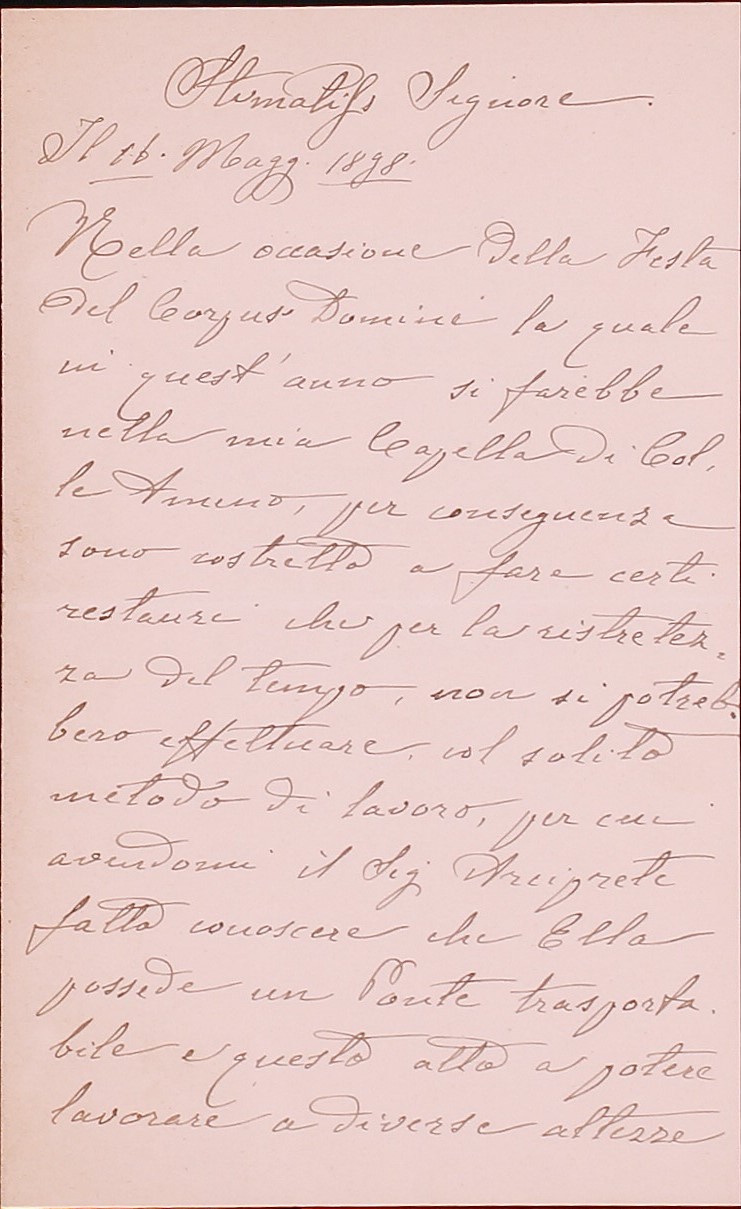 Stimatiss Signore.
Il 16. Magg. 1898.
Nella occasione della Festa
del Corpus Domini la quale
in quest'anno si farebbe
nella mia Capella di Col,
le Ameno, per conseguenza
sono costretto a fare certi
restauri che per la ristretez=
za del tempo, non si potreb=
bero effettuare, col solito
metodo di lavoro, per cui
avendomi il Sig Arciprete
fatto conoscere che Ella
possede un Ponte trasporta.
bile e questo atto a potere
lavorare a diverse altezze